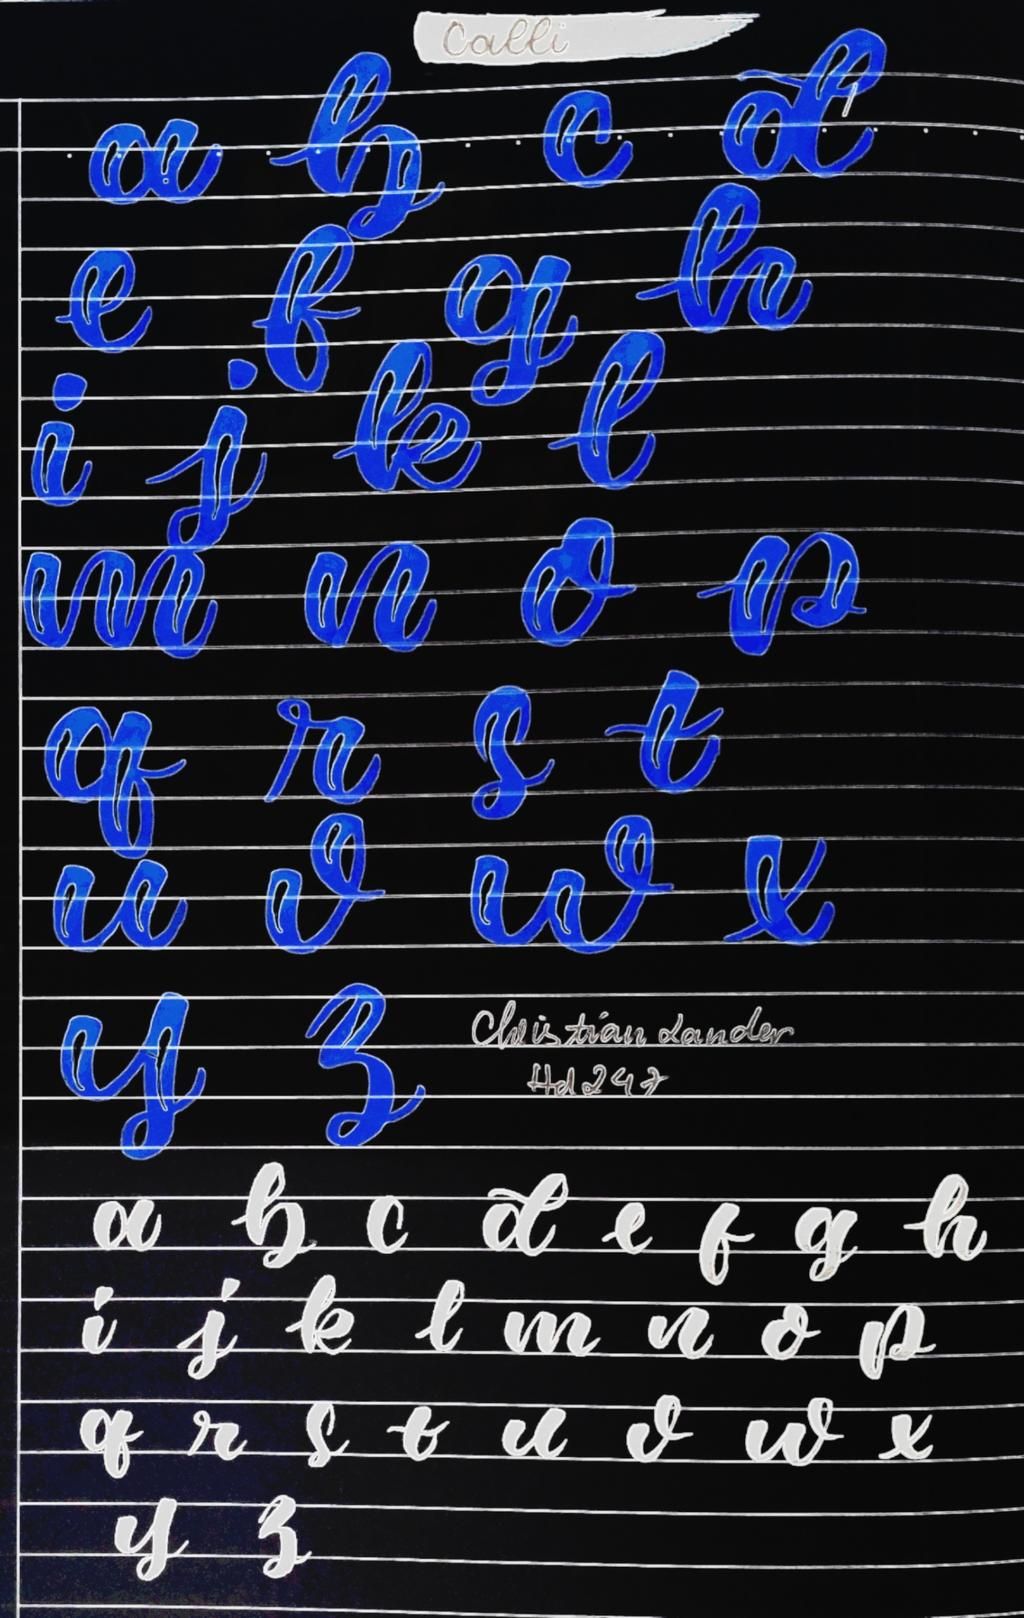 Calli
a b c d
e f g h
i j k l
m n o p
q r s t
u v w x
y z
Christian Lander
Hd247
a b c d e f g h
i j k l m n o p
q r s t u v w x
y z